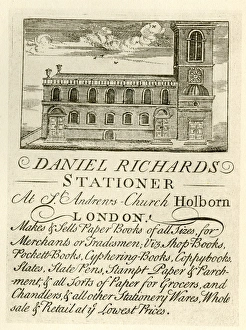 DANIEL RICHARDS
STATIONER
At St. Andrews Church Holborn
LONDON.
Makes & Sells Paper Books of all Sizes, for
Merchants or Tradesmen; Viz. Shop-Books,
Pockett-Books, Cyphering-Books, Coppybooks,
Slates, Slate Pens, Stampt-Paper & Parch-
ment, & all Sorts of Paper for Grocers, and
Chandlers, & all other Stationery Wares, Whole
sale & Retail at ye Lowest Prices.